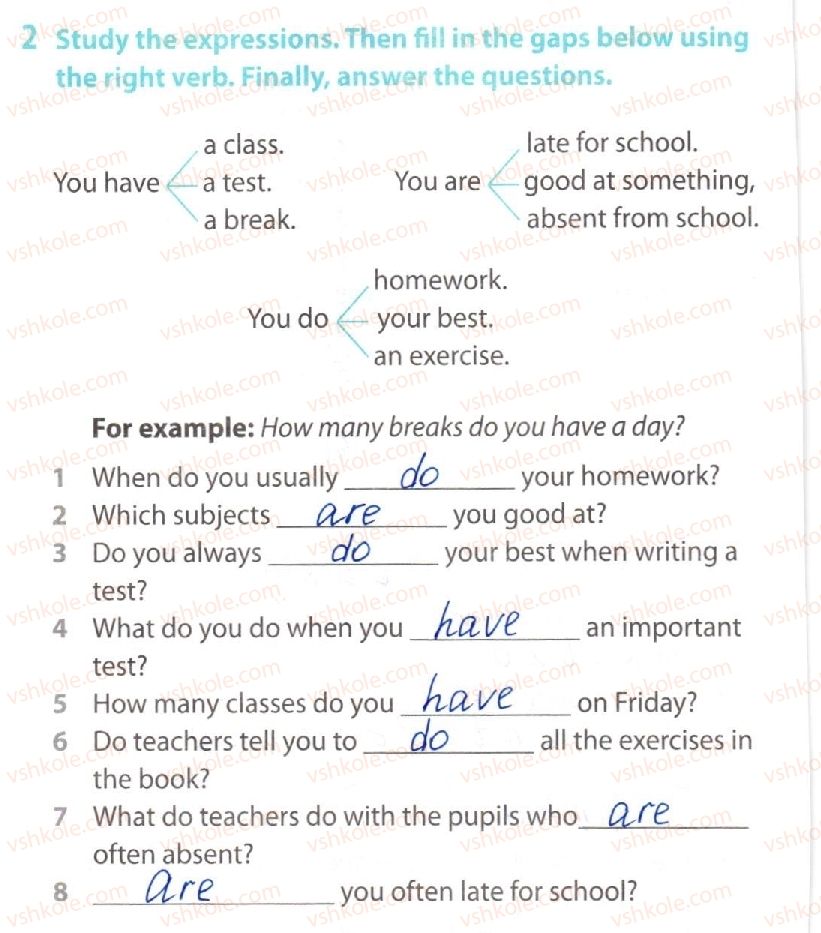 2 Study the expressions. Then fill in the gaps below using
the right verb. Finally, answer the questions.
a class.
You have a test.
a break.
late for school.
You are good at something,
absent from school.
homework.
You do your best.
an exercise.
For example: How many breaks do you have a day?
1 When do you usually do your homework?
2 Which subjects are you good at?
3 Do you always do your best when writing a
test?
4 What do you do when you have an important
test?
5 How many classes do you have on Friday?
6 Do teachers tell you to do all the exercises in
the book?
7 What do teachers do with the pupils who are
often absent?
8 Are you often late for school?
vshkole.com